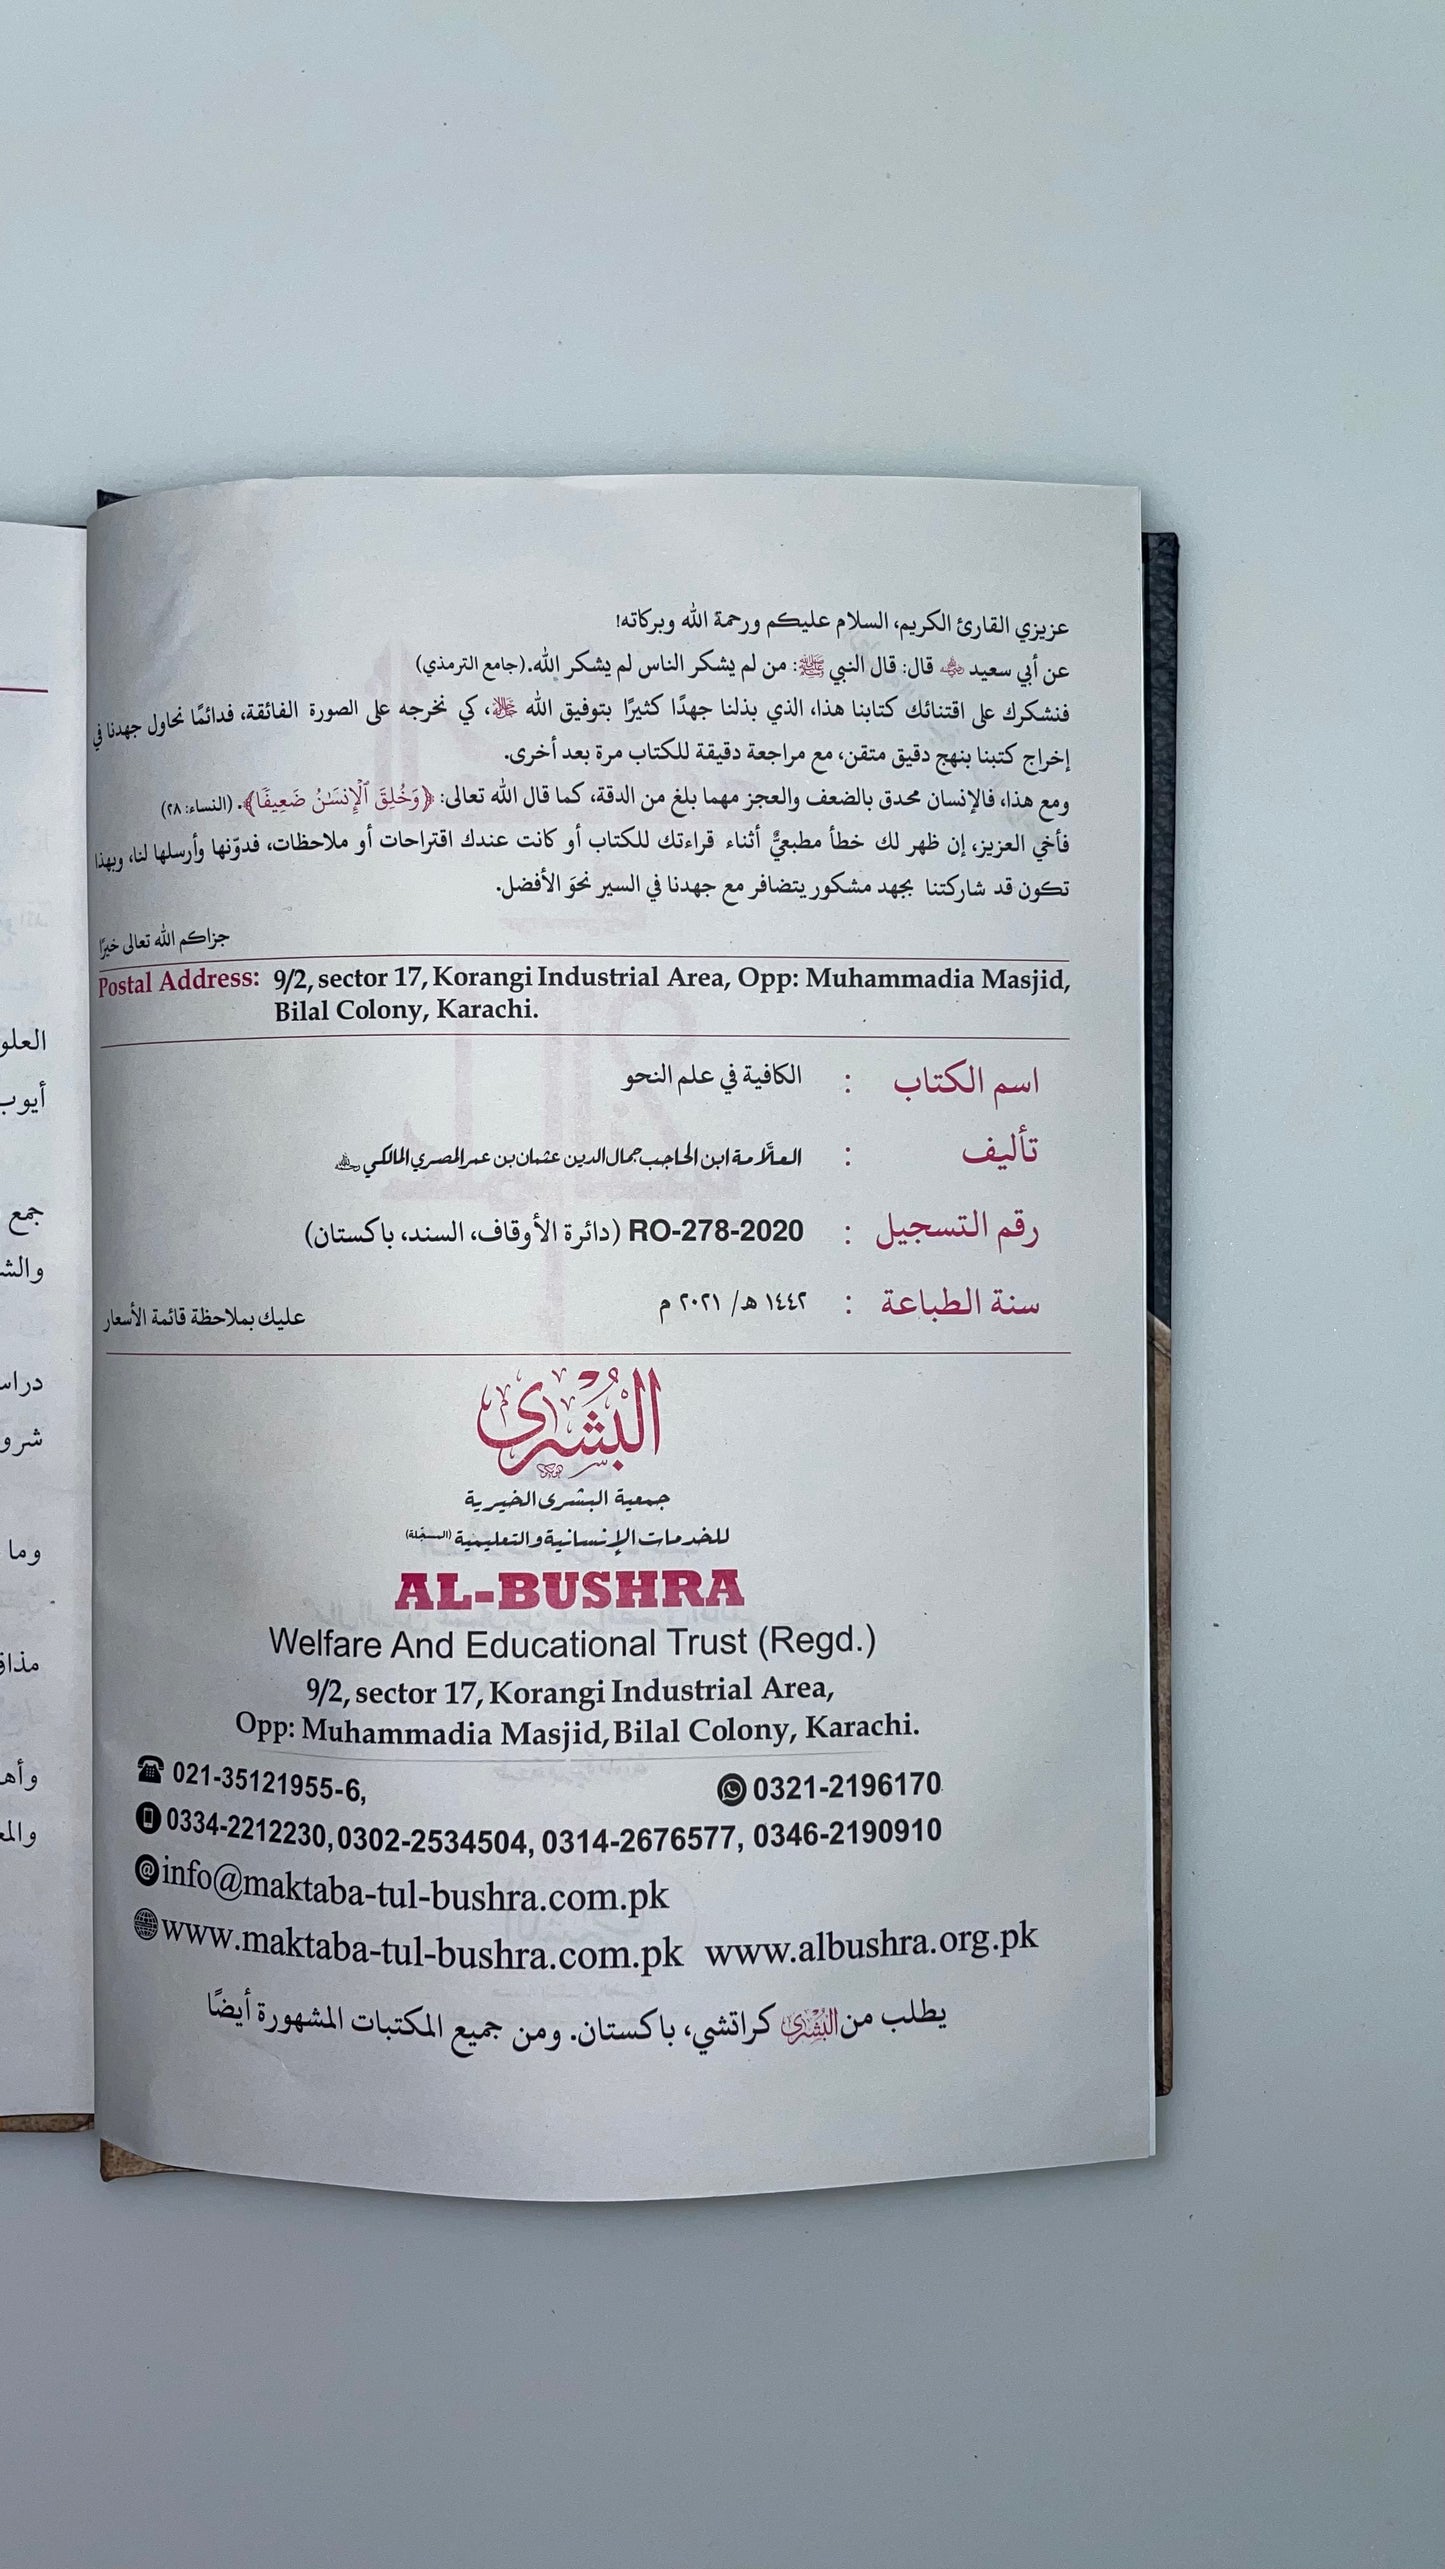 عزيزي القارئ الكريم، السلام عليكم ورحمة الله وبركاته!
عن أبي سعيد ؓ قال: قال النبي ﷺ: من لم يشكر الناس لم يشكر الله. (جامع الترمذي)
فنشكرك على اقتنائك كتابنا هذا، الذي بذلنا جهدًا كثيرًا بتوفيق الله ﷻ، كي نخرجه على الصورة الفائقة، فدائمًا نحاول جهدنا في
إخراج كتبنا بنهج دقيق متقن، مع مراجعة دقيقة للكتاب مرة بعد أخرى.
ومع هذا، فالإنسان محدق بالضعف والعجز مهما بلغ من الدقة، كما قال الله تعالى: ﴿وَخُلِقَ ٱلْإِنسَٰنُ ضَعِيفًا﴾. (النساء: ٢٨)
فأخي العزيز، إن ظهر لك خطأ مطبعيٌّ أثناء قراءتك للكتاب أو كانت عندك اقتراحات أو ملاحظات، فدوّنها وأرسلها لنا، وبهذا
تكون قد شاركتنا بجهد مشكور يتضافر مع جهدنا في السير نحوَ الأفضل.
جزاكم الله تعالى خيرًا
Postal Address: 9/2, sector 17, Korangi Industrial Area, Opp: Muhammadia Masjid,
Bilal Colony, Karachi.
اسم الكتاب : الكافية في علم النحو
تأليف : العلّامة ابن الحاجب جمال الدين عثمان بن عمر المصري المالكي
رقم التسجيل : RO-278-2020 (دائرة الأوقاف، السند، باكستان)
سنة الطباعة : ١٤٤٢ هـ/ ٢٠٢١ م
عليك بملاحظة قائمة الأسعار
البُشْرى
جمعية البشرى الخيرية
للخدمات الإنسانية والتعليمية (المسجّلة)
AL-BUSHRA
Welfare And Educational Trust (Regd.)
9/2, sector 17, Korangi Industrial Area,
Opp: Muhammadia Masjid, Bilal Colony, Karachi.
021-35121955-6, 0321-2196170
0334-2212230, 0302-2534504, 0314-2676577, 0346-2190910
info@maktaba-tul-bushra.com.pk
www.maktaba-tul-bushra.com.pk www.albushra.org.pk
يطلب من البُشْرى كراتشي، باكستان. ومن جميع المكتبات المشهورة أيضًا